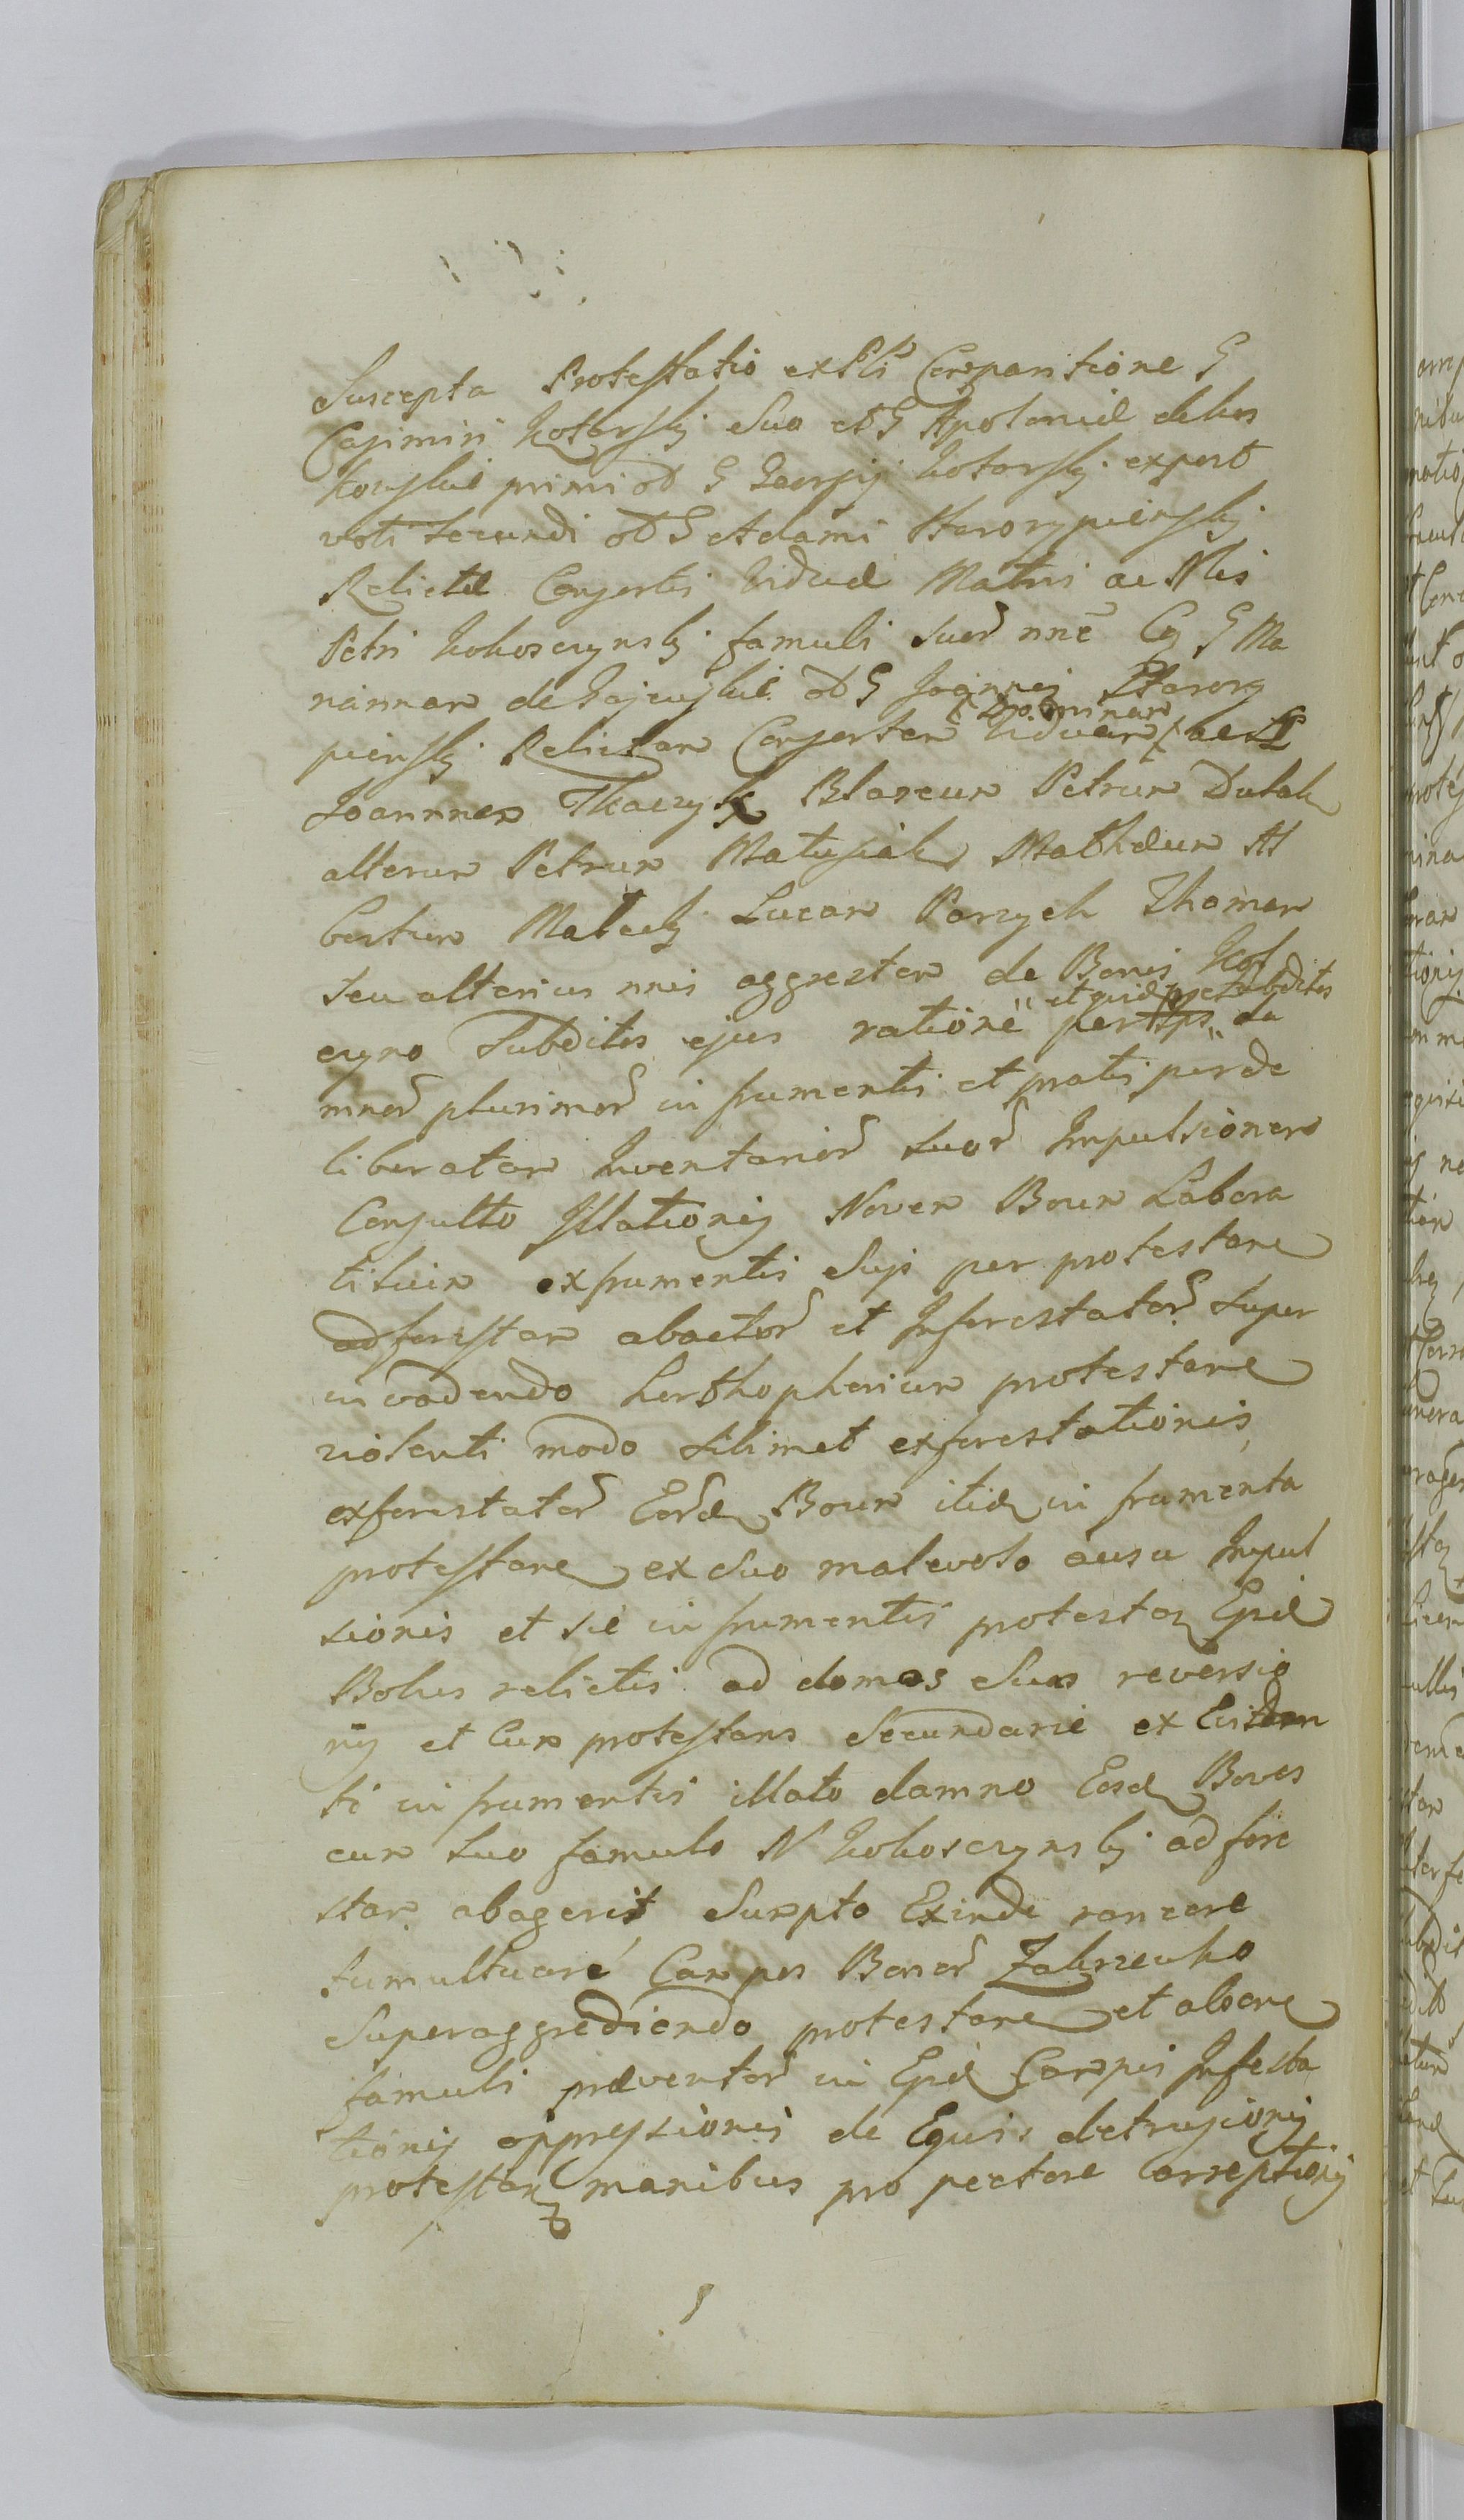 Suscepta Protestatio ex Psli Comparitione G
Casimiri Kotarskj Suo et G Apoloniæ de kos
kowskie primi od G Georgij Kotarskj expost
voti secundi od G Adami Starorypienskj
Relictæ Consortis Viduæ Matris ac Nlis
Petri Kokoscynskj famuli suor nne Cq G Ma
riannam de Gajewskie od G Joannej Starory
Dominam
pienskj Relictam Consortem Viduam ac
Joannnem Tkaczyk Blaseum Petrum Dutak
alterum Petrum Matusiak Mathæum Al
bertum Małecki Lucam Parzych Thomam
seu alterius nnis aggrestem de Bonis Kot
et quidem subditos
cyno Subditos ejus ratione per da
mnor plurimor in frumentis et pratis per de
liberatam Inventarior suor Impulsionem
Consulto Illationis Novem Boum Labora
titium ex frumentis Sujs per protestane
ad forestam abactor et Inforestator super
invadendo Lerthopherium protestane
violenti modo sibimet exforestationis
exforestator Eord Boum itid in frumenta
protestane ex suo malevolo ausu Impul
sionis et sic in frumentis protestan Ejsd
Bobus relictis ad domos Suas reversio
nis et Cum protestans Secundarie ex Eviden
ti in frumentis illato damno Eosd Boves
cum suo famulo N Kokoscynskj ad fore
stam abagerit Sumpto Exinde rancore
tumultuarie Campos Bonor Zakrzewko
Superaggrediendo protestane et aliorne
famuli præventor in Ejsd Campis Infesta
tionis oppressionis de Equis detrusionis
protestan manibus pro pectore correptionis